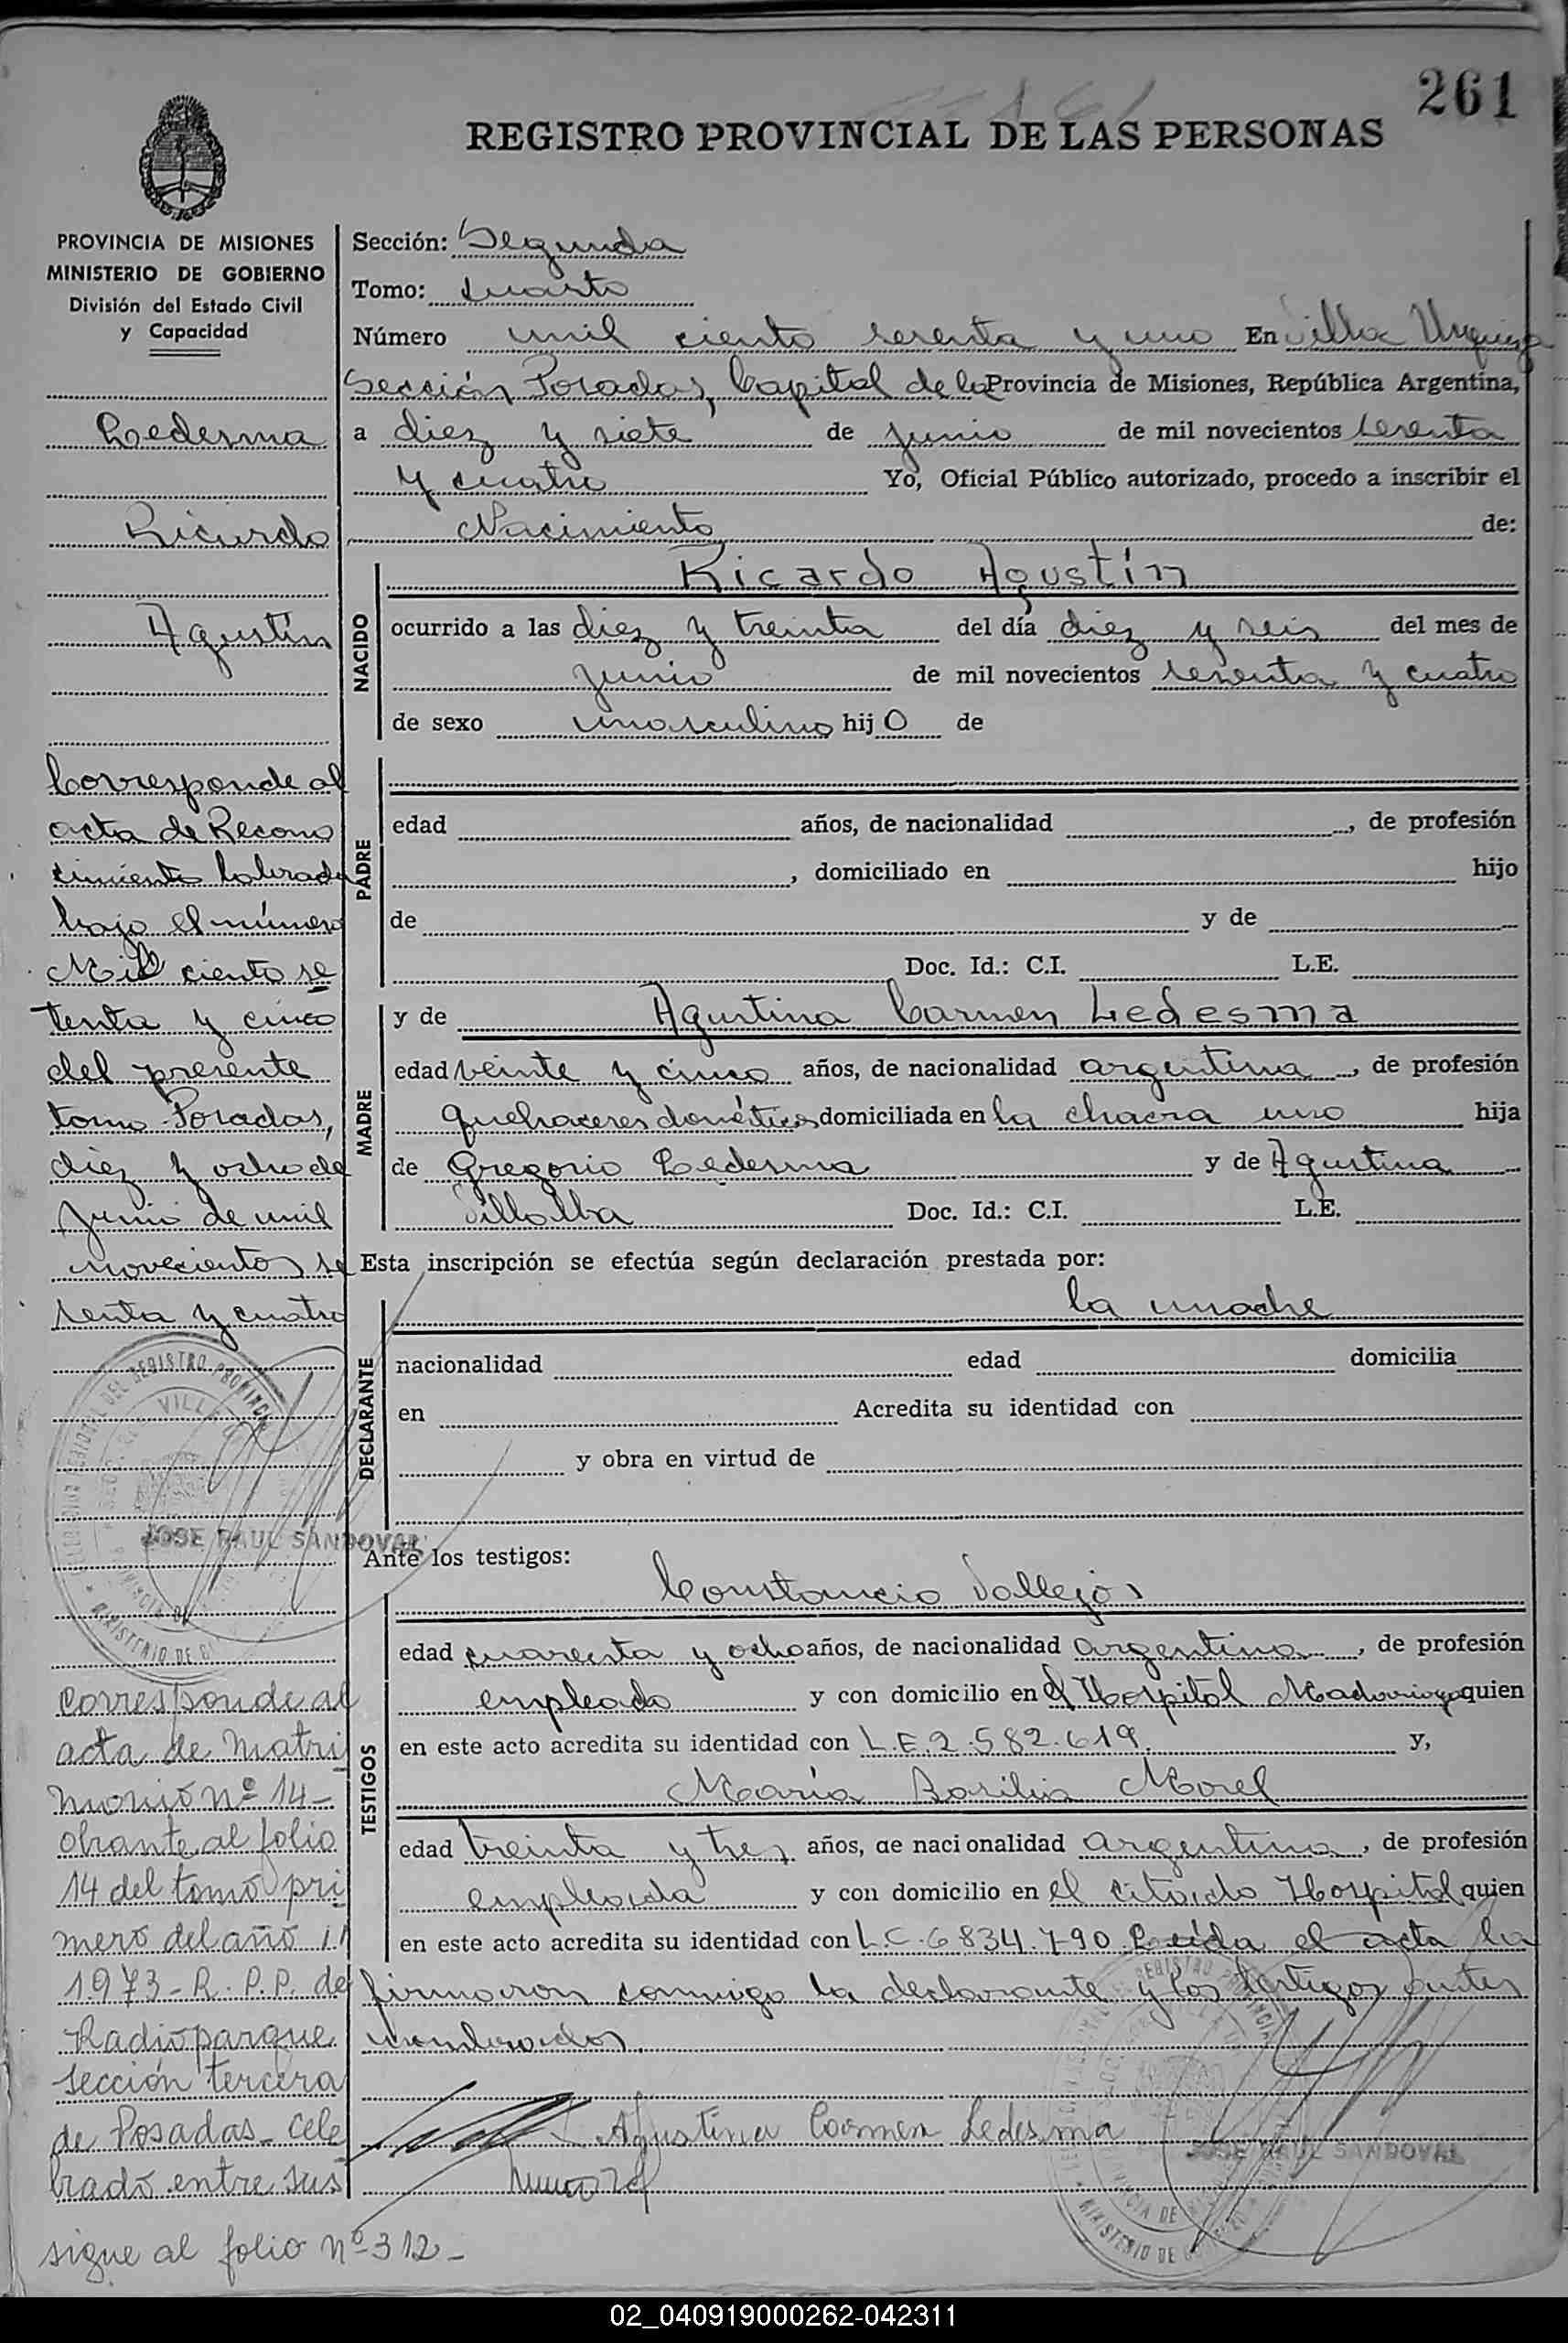 261
REGISTRO PROVINCIAL DE LAS PERSONAS
PROVINCIA DE MISIONES
MINISTERIO DE GOBIERNO
División del Estado Civil
y Capacidad
Ledesma
Ricardo
Agustín
Corresponde al
acta de Recono
cimiento labrada
bajo el número
Mil ciento se
tenta y cinco
del presente
tomo Posadas,
diez y ocho de
junio de mil
novecientos se
senta y cuatro
JOSE RAUL SANDOVAL
Corresponde al
acta de Matri
monio nº 14-
obrante al folio
14 del tomo pri
mero del año
1973- R.P.P. de
Radioparque
sección tercera
de Posadas- cele
brado entre sus
sigue al folio nº 312-
Sección: Segunda
Tomo: Cuarto
Número mil ciento sesenta y uno En Villa Urquiza
Sección Posadas, Capital de la Provincia de Misiones, República Argentina,
a diez y siete de junio de mil novecientos sesenta
y cuatro Yo, Oficial Público autorizado, procedo a inscribir el
Nacimiento de:
NACIDO
Ricardo Agustín
ocurrido a las diez y treinta del día diez y seis del mes de
junio de mil novecientos sesenta y cuatro
de sexo masculino hijo de
PADRE
edad años, de nacionalidad , de profesión
, domiciliado en hijo
de y de
Doc. Id.: C.I. L.E.
MADRE
y de Agustina Carmen Ledesma
edad veinte y cinco años, de nacionalidad argentina, de profesión
quehaceres domésticos domiciliada en la chacra uno hija
de Gregorio Ledesma y de Agustina
Villalba Doc. Id.: C.I. L.E.
Esta inscripción se efectúa según declaración prestada por:
la madre
DECLARANTE
nacionalidad edad domicilia
en Acredita su identidad con
y obra en virtud de
Ante los testigos:
TESTIGOS
Constancio Vallejos
edad cuarenta y ocho años, de nacionalidad argentina, de profesión
empleado y con domicilio en el Hospital Madariaga quien
en este acto acredita su identidad con L.E.2.582.619. y,
María Basilia Morel
edad treinta y tres años, de nacionalidad argentina, de profesión
empleada y con domicilio en el citado Hospital quien
en este acto acredita su identidad con L.C.6834.790 Leída el acta la
firmaron conmigo la declarante y los testigos antes
nombrados.
Agustina Carmen Ledesma
JOSE RAUL SANDOVAL
02_040919000262-042311